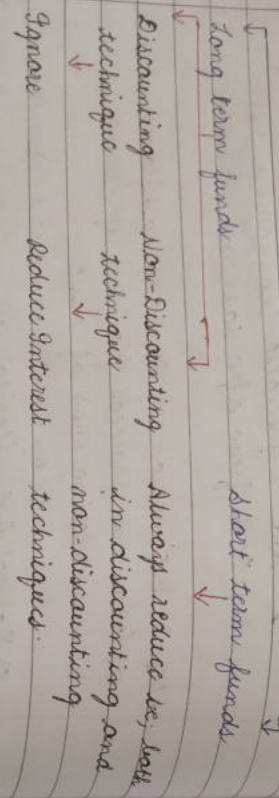 Long term funds
Short term funds
Discounting technique
Non-Discounting technique
Always reduce ie, both in discounting and non-discounting techniques.
Ignore
Reduce Interest